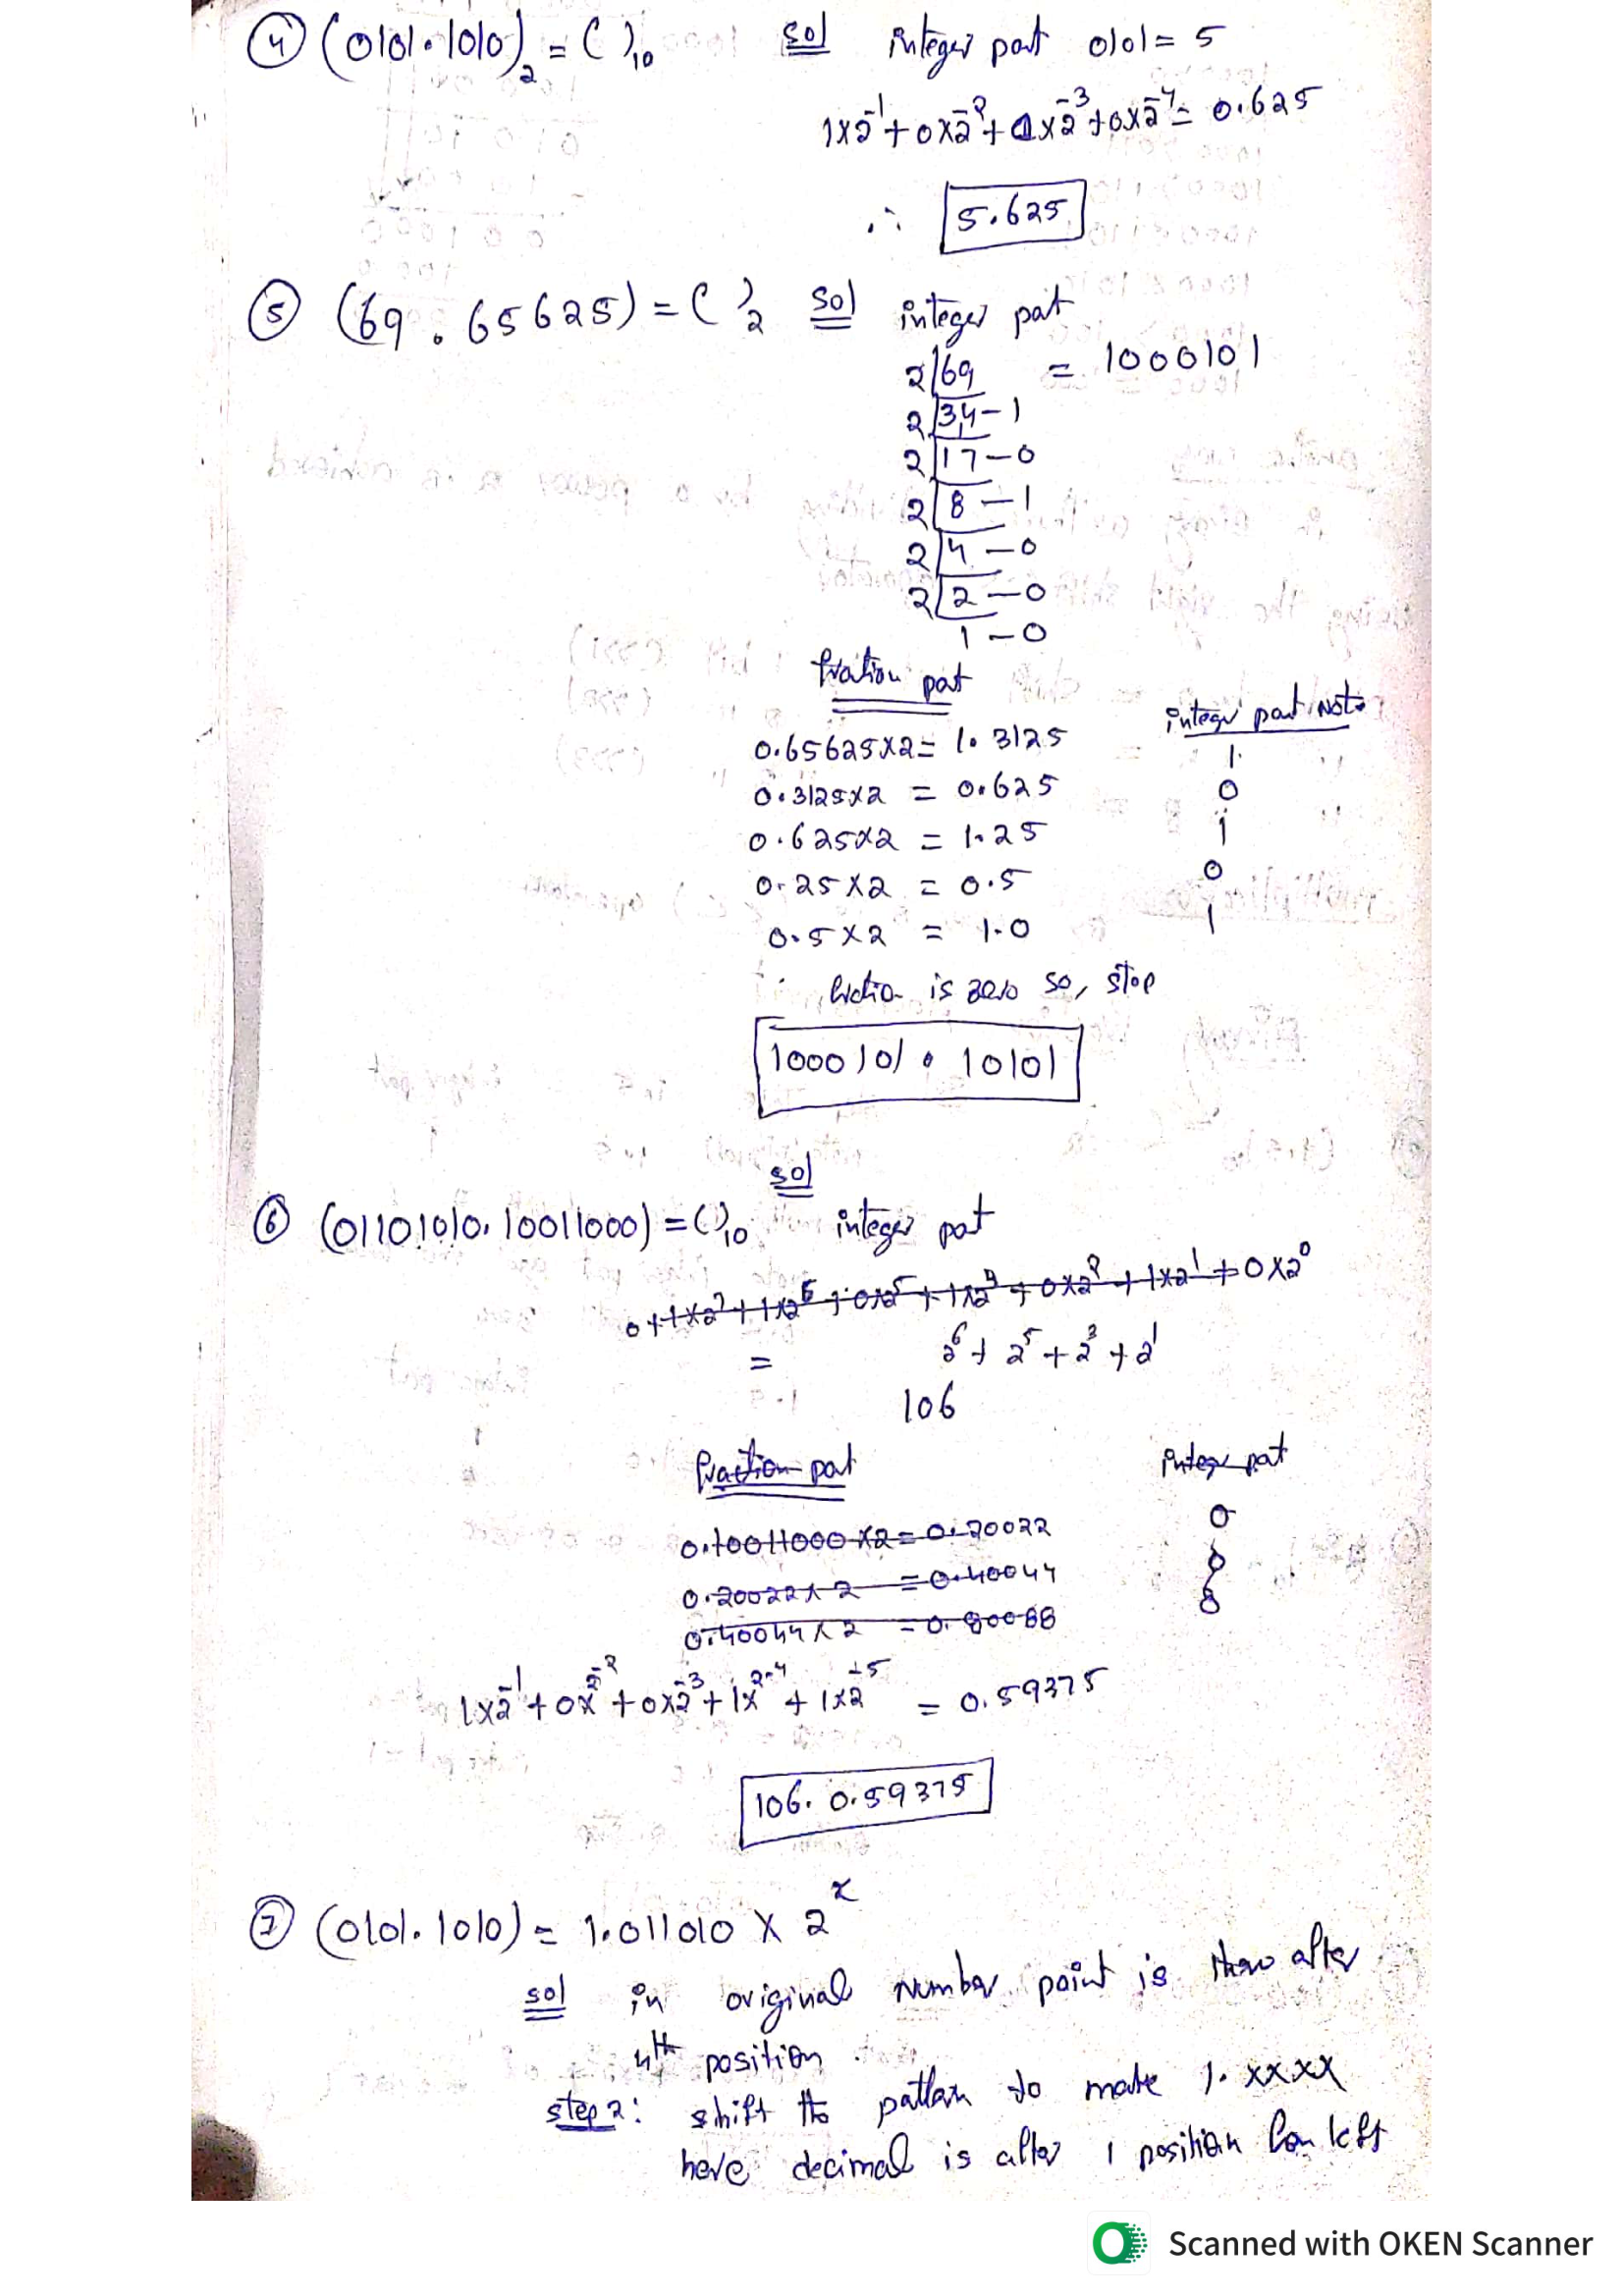 ④ (0101.1010)₂ = ( )₁₀ sol integer part 0101 = 5
1×2⁻¹ + 0×2⁻² + 1×2⁻³ + 0×2⁻⁴ = 0.625
∴ 5.625
⑤ (69.65625) = ( )₂ sol integer part
2|69 = 1000101
2|34 – 1
2|17 – 0
2|8 – 1
2|4 – 0
2|2 – 0
1 – 0
fration part
integer part Note
0.65625×2 = 1.3125 1
0.3125×2 = 0.625 0
0.625×2 = 1.25 1
0.25×2 = 0.5 0
0.5×2 = 1.0 1
is zero so, stop
1000101.10101
sol
⑥ (01101010.10011000) = ( )₁₀ integer part
0+1×2⁷+1×2⁶+0×2⁵+1×2⁴+0×2²+1×2¹+0×2⁰
= 2⁶ + 2⁵ + 2³ + 2¹
106
fraction part integer part
0.10011000×2 = 0.20022 0
0.20022×2 = 0.40044 0
0.40044×2 = 0.80088 0
1×2⁻¹ + 0×2⁻² + 0×2⁻³ + 1×2⁻⁴ + 1×2⁻⁵ = 0.59375
106.0.59375
⑦ (0101.1010) = 1.011010 × 2ˣ
sol in original number point is after
4th position
step 2: shift the pattern to make 1.xxxx
here decimal is after 1 position left
Scanned with OKEN Scanner